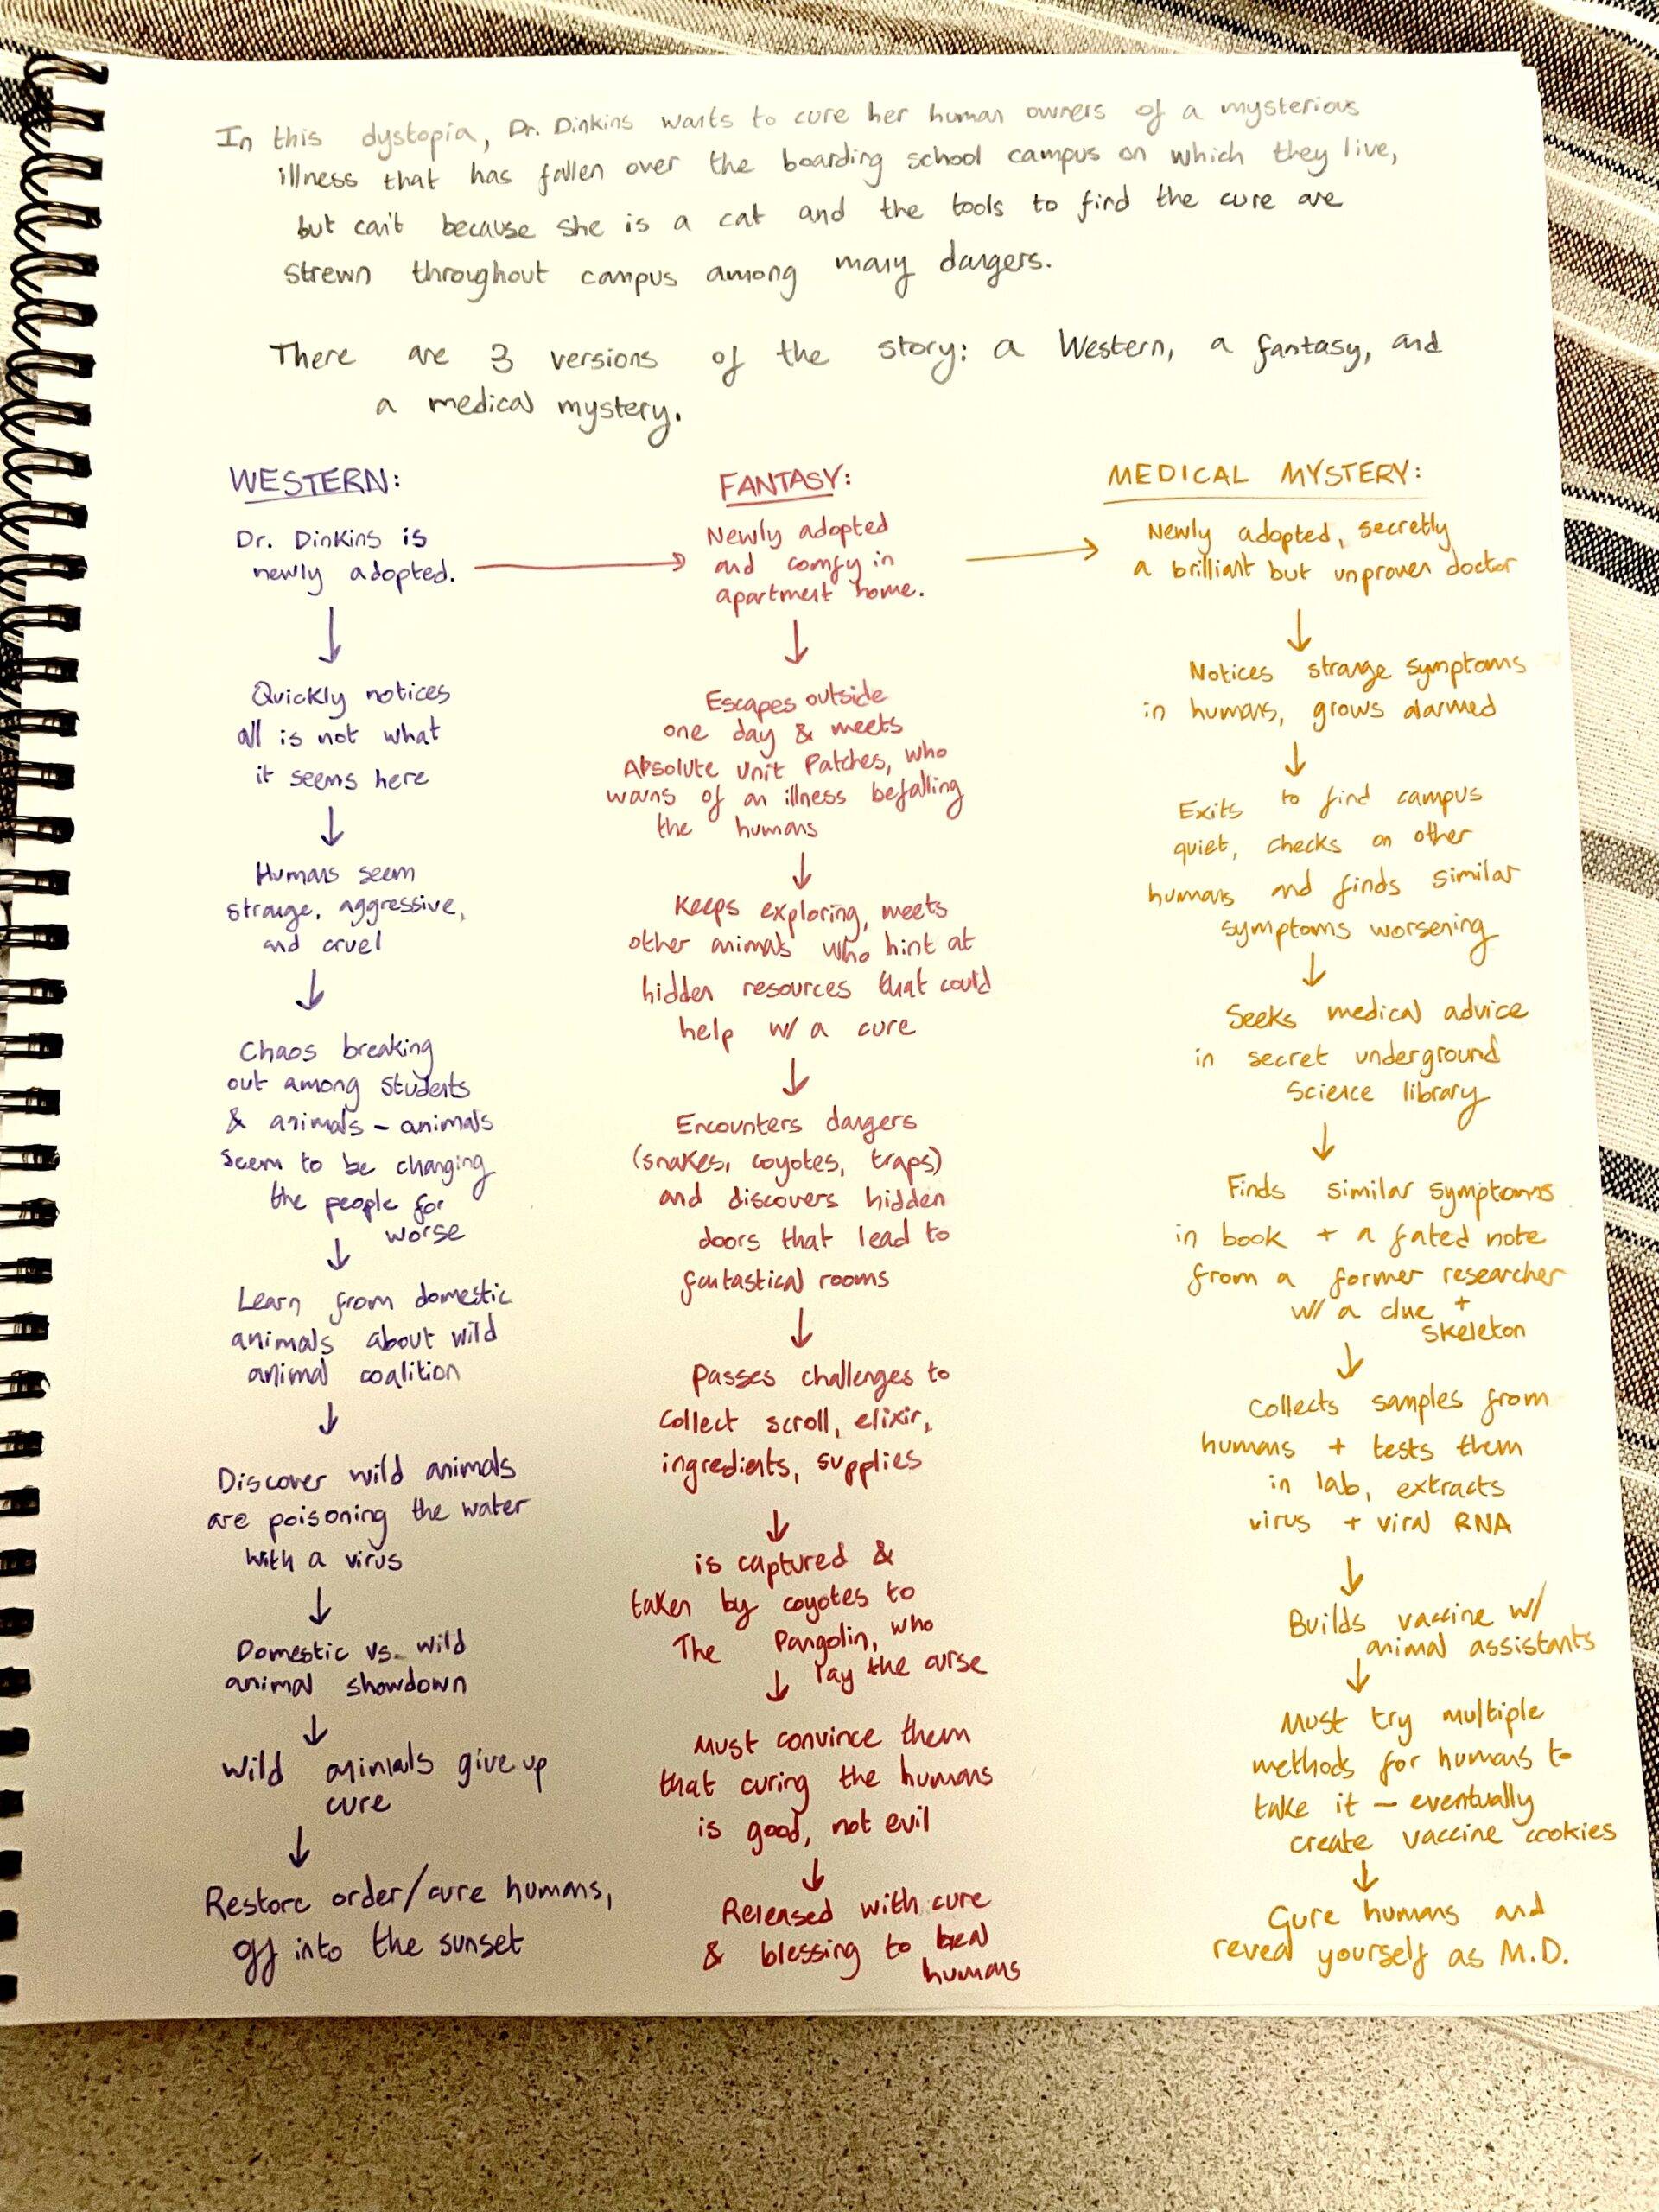 In this dystopia, Dr. Dinkins wants to cure her human owners of a mysterious
illness that has fallen over the boarding school campus on which they live,
but can't because she is a cat and the tools to find the cure are
strewn throughout campus among many dangers.
There are 3 versions of the story: a Western, a fantasy, and
a medical mystery.
WESTERN:
Dr. Dinkins is
newly adopted.
Quickly notices
all is not what
it seems here
Humans seem
strange, aggressive,
and cruel
Chaos breaking
out among students
& animals - animals
seem to be changing
the people for
worse
Learn from domestic
animals about wild
animal coalition
Discover wild animals
are poisoning the water
with a virus
Domestic vs. wild
animal showdown
Wild animals give up
cure
Restore order/cure humans,
off into the sunset
FANTASY:
Newly adopted
and comfy in
apartment home.
Escapes outside
one day & meets
Absolute Unit Patches, who
warns of an illness befalling
the humans
Keeps exploring, meets
other animals who hint at
hidden resources that could
help w/ a cure
Encounters dangers
(snakes, coyotes, traps)
and discovers hidden
doors that lead to
fantastical rooms
Passes challenges to
collect scroll, elixir,
ingredients, supplies
is captured &
taken by coyotes to
The Pangolin, who
lay the curse
Must convince them
that curing the humans
is good, not evil
Released with cure
& blessing to heal
humans
MEDICAL MYSTERY:
Newly adopted, secretly
a brilliant but unproven doctor
Notices strange symptoms
in humans, grows alarmed
Exits to find campus
quiet, checks on other
humans and finds similar
symptoms worsening
Seeks medical advice
in secret underground
science library
Finds similar symptoms
in book + a fated note
from a former researcher
w/ a clue +
skeleton
Collects samples from
humans + tests them
in lab, extracts
virus + viral RNA
Builds vaccine w/
animal assistants
Must try multiple
methods for humans to
take it - eventually
create vaccine cookies
Cure humans and
reveal yourself as M.D.